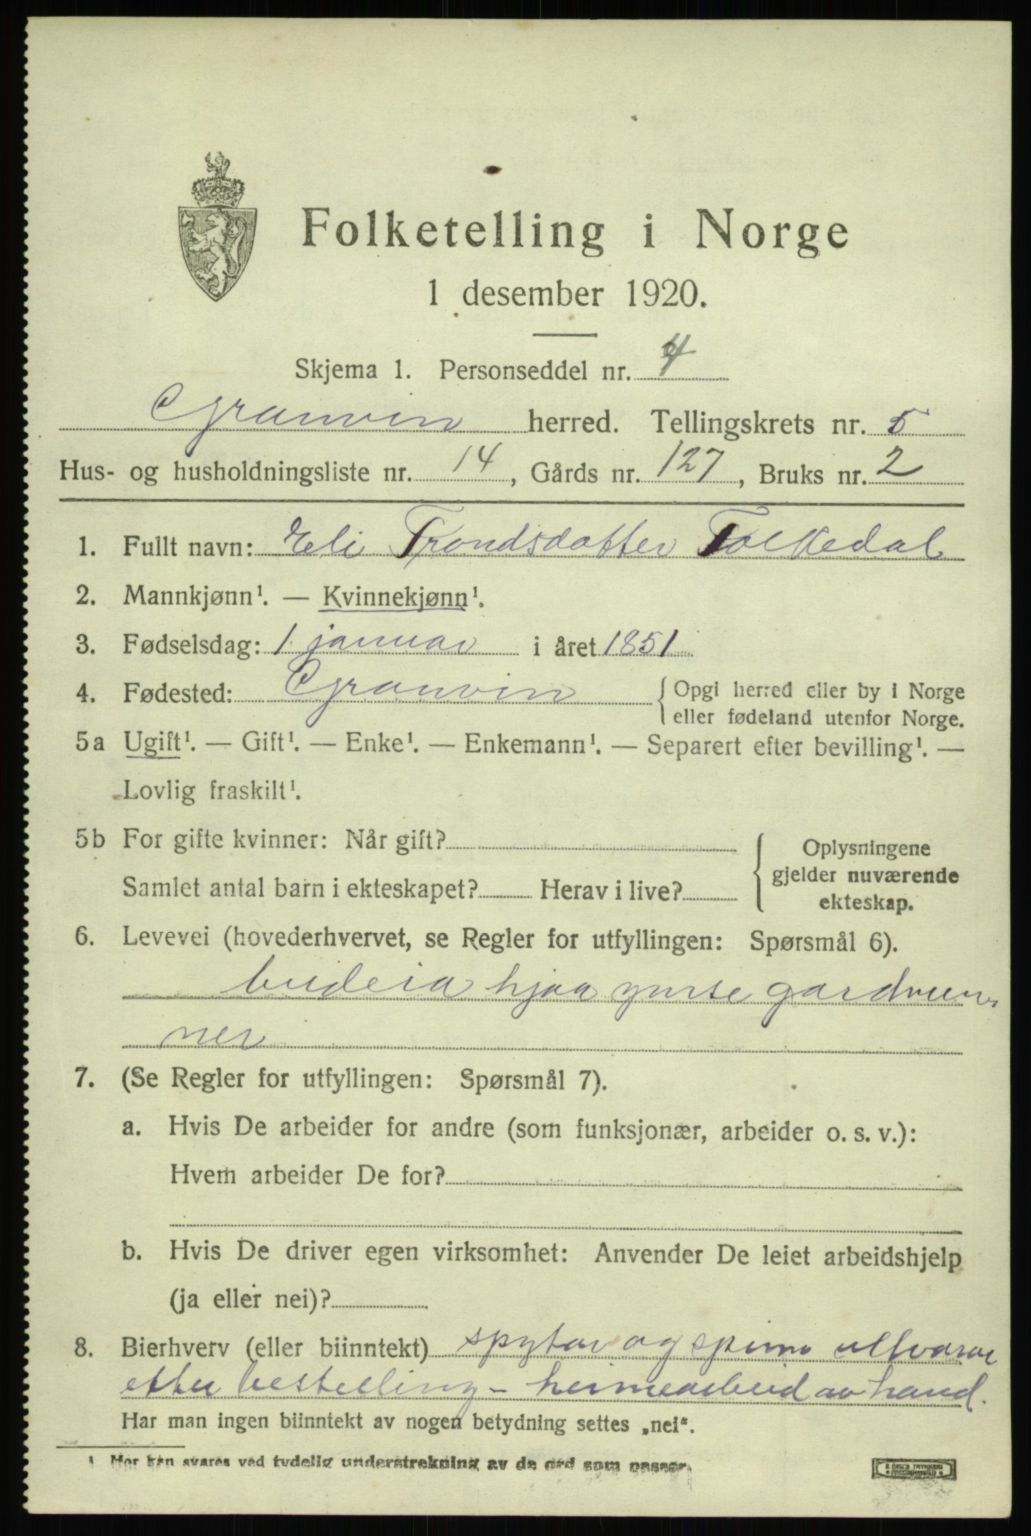 Folketelling i Norge
1 desember 1920.
Skjema 1. Personseddel nr. 4
Granvin herred. Tellingskrets nr. 5
Hus- og husholdningsliste nr. 14, Gårds nr. 127, Bruks nr. 2
1. Fullt navn: Eli Trondsdotter Folkedal
2. Mannkjønn¹. — Kvinnekjønn¹.
3. Fødselsdag: 1 januar i året 1851
4. Fødested: Granvin { Opgi herred eller by i Norge
eller fødeland utenfor Norge.
5a Ugift¹. — Gift¹. — Enke¹. — Enkemann¹. — Separert efter bevilling¹. —
Lovlig fraskilt¹.
5b For gifte kvinner: Når gift?
Samlet antal barn i ekteskapet? Herav i live?
Oplysningene
gjelder nuværende
ekteskap.
6. Levevei (hovederhvervet, se Regler for utfyllingen: Spørsmål 6).
budeia hjaa ymse
ner
7. (Se Regler for utfyllingen: Spørsmål 7).
a. Hvis De arbeider for andre (som funksjonær, arbeider o. s. v.):
Hvem arbeider De for?
b. Hvis De driver egen virksomhet: Anvender De leiet arbeidshjelp
(ja eller nei)?
8. Bierhverv (eller biinntekt) og
etter bestelling - heimearbeid av hand.
Har man ingen biinntekt av nogen betydning settes „nei“.
¹ Her kan svares ved tydelig understrekning av de ord som passer.